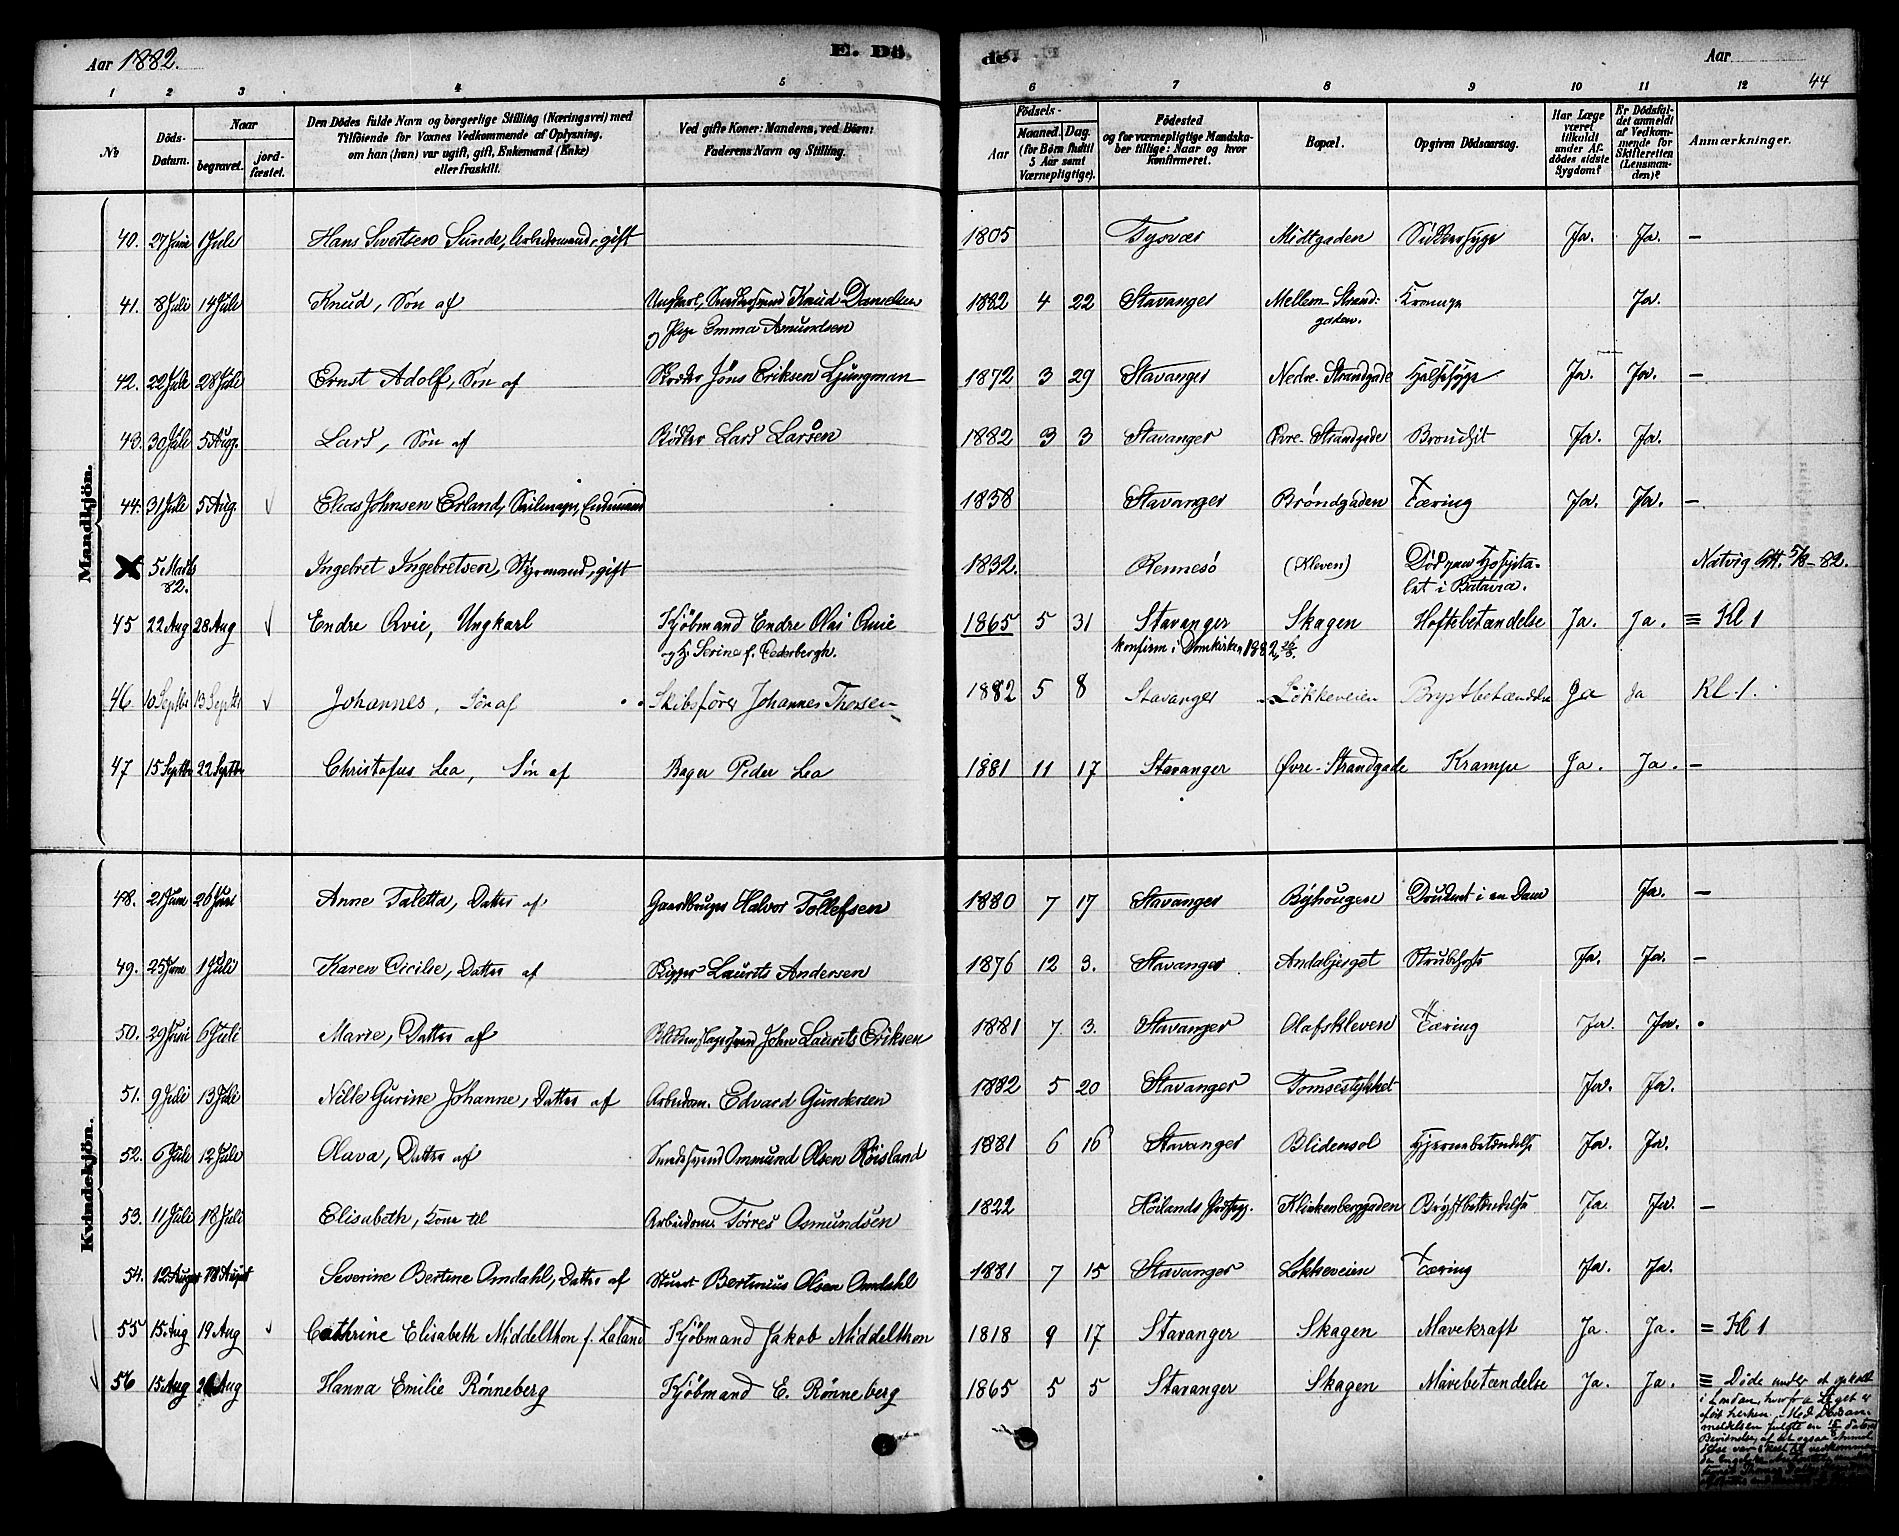 Aar 1882.
E. Dö
de.
Aar
44
1 2 3 4 5 6 7 8 9 10 11 12
No.
Döds-Datum.
Naar
begravet.
jord-fæstet.
Den Dödes fulde Navn og borgerlige Stilling (Næringsvei) med
Tilföiende for Voxnes Vedkommende af Oplysning,
om han (hun) var ugift, gift, Enkemand (Enke)
eller fraskilt.
Ved gifte Koner: Mandens, ved Börn:
Faderens Navn og Stilling.
Födsels-
Aar
Maaned. Dag.
(for Börn indtil
5 Aar samt
Værnepligtige).
Födested
og for værnepligtige Mandska-
ber tillige: Naar og hvor
konfirmeret.
Bopæl.
Opgiven Dödsaarsag.
Har Læge
været
tilkaldt
under Af-
dödes sidste
Sygdom?
Er Dödsfal-
det anmeldt
af Vedkom-
mende for
Skifteretten
(Lensman-
den)?
Anmærkninger.
Mandkjön.
40. 27 Juni 1 Juli Hans Sivertsen Sunde, Arbeidsmand, gift 1805 Tysvær Midtgaden Sukkersyge Ja. Ja. —
41. 8 Juli 14 Juli Knud, Søn af Ungkarl, Knud Danielsen 1882 4 22 Stavanger Mellem-Strand- Krampe Ja.
og Pige Emma Amundsen gaden.
42. 22 Juli 28 Juli Ernst Adolf, Søn af Jöns Eriksen Ljungman 1872 3 29 Stavanger Nedre. Strandgade Halssyge Ja. Ja. —
43. 30 Juli 5 Aug. Lars, Søn af Bødker Lars Larsen 1882 3 3 Stavanger Øvre. Strandgade Bronchit Ja. Ja.
44. 31 Juli 5 Aug. Elias Johnsen Erland, Seilmager, Enkemand 1838 Stavanger Brøndgaden Tæring Ja. Ja. —
5 Marts Ingebret Ingebretsen, Styrmand, gift 1832. Rennesö (Kleven) Död paa Hospita- Natvig Att. 5/8-82.
82. let i Batavia.
45 22 Aug 28 Aug Endre Qvie, Ungkarl Kjøbmand Endre Olai Qvie 1865 5 31 Stavanger Skagen Hoftebetændelse Ja. Ja. = Kl 1
og H. Serine f. Cederbergh. Konfirm i Domkirken 1882
46 10 Septbr 13 Septbr Johannes, Søn af Skibsfører Johannes Thorsen 1882 5 8 Stavanger Løkkeveien Brystbetændelse Ja Ja Kl. 1.
47 15 Septbr 22 Septbr Christofus Lea, Søn af Bager Peder Lea 1881 11 17 Stavanger Øvre. Strandgade Krampe Ja. Ja. —
Kvindekjön.
48. 21 Juni 26 Juni Anne Taletta, Datter af Gaardbruger Halvor Tollefsen 1880 7 17 Stavanger Byhougen Druknet i en Dam Ja. —
49. 25 Juni 1 Juli Karen Cicilie, Datter af Skipper Laurits Andersen 1876 12 3. Stavanger Andabjerget Strubehoste Ja. Ja. —
50. 29 Juni 6 Juli Marie, Datter af Blikkenslagersvend John Laurits Eriksen 1881 7 3. Stavanger Olafskleven Tæring Ja. Ja.
51. 9 Juli 13 Juli Nille Gurine Johanne, Datter af Arbeidsm. Edvard Gundersen 1882 5 20 Stavanger Tomsestykket Ja. Ja.
52. 6 Juli 12 Juli Olava, Datter af Ommund Olsen Røisland 1881 6 16 Stavanger Blidensol Hjernebetændelse Ja. Ja.
53. 11 Juli 18 Juli Elisabeth, Kone til Arbeidsm Tørres Osmundsen 1822 Høilands Præstgj. Klinkenberggaden Brystbetændelse Ja. Ja. —
54. 12 August 18 August Severine Bertine Omdahl, Datter af Stuert Bertinius Olsen Omdahl 1881 7 15 Stavanger Løkkeveien Tæring Ja. Ja.
55 15 Aug 19 Aug Cathrine Elisabeth Middelthon f. Laland Kjøbmand Jakob Middelthon 1818 9 17 Stavanger Skagen Mavekræft Ja. Ja. = Kl 1
56 15 Aug Aug Hanna Emilie Rønneberg Kjøbmand E. Rønneberg 1865 5 5 Stavanger Skagen Mavebetændelse Ja. Ja. = Døde under et ophold
i London, hvorfra Liget er
ført herhen. Med Dødsan-
meldelsen fulgte en